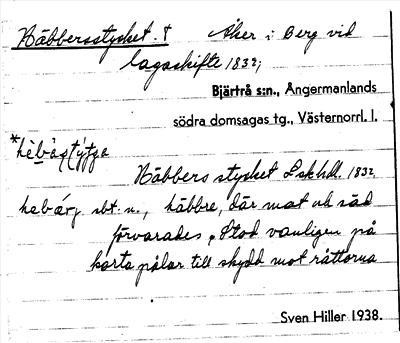 Häbbersstycket. † Åker i Berg vid
lagaskifte 1832;
Bjärtrå s:n., Ångermanlands
södra domsagas tg., Västernorrl. l.
Häbbers stycket Lskhdl. 1832
sbt. n., häbbre, där mat och säd
förvarades. Stod vanligen på
korta pålar till skydd mot råttorna
Sven Hiller 1938.